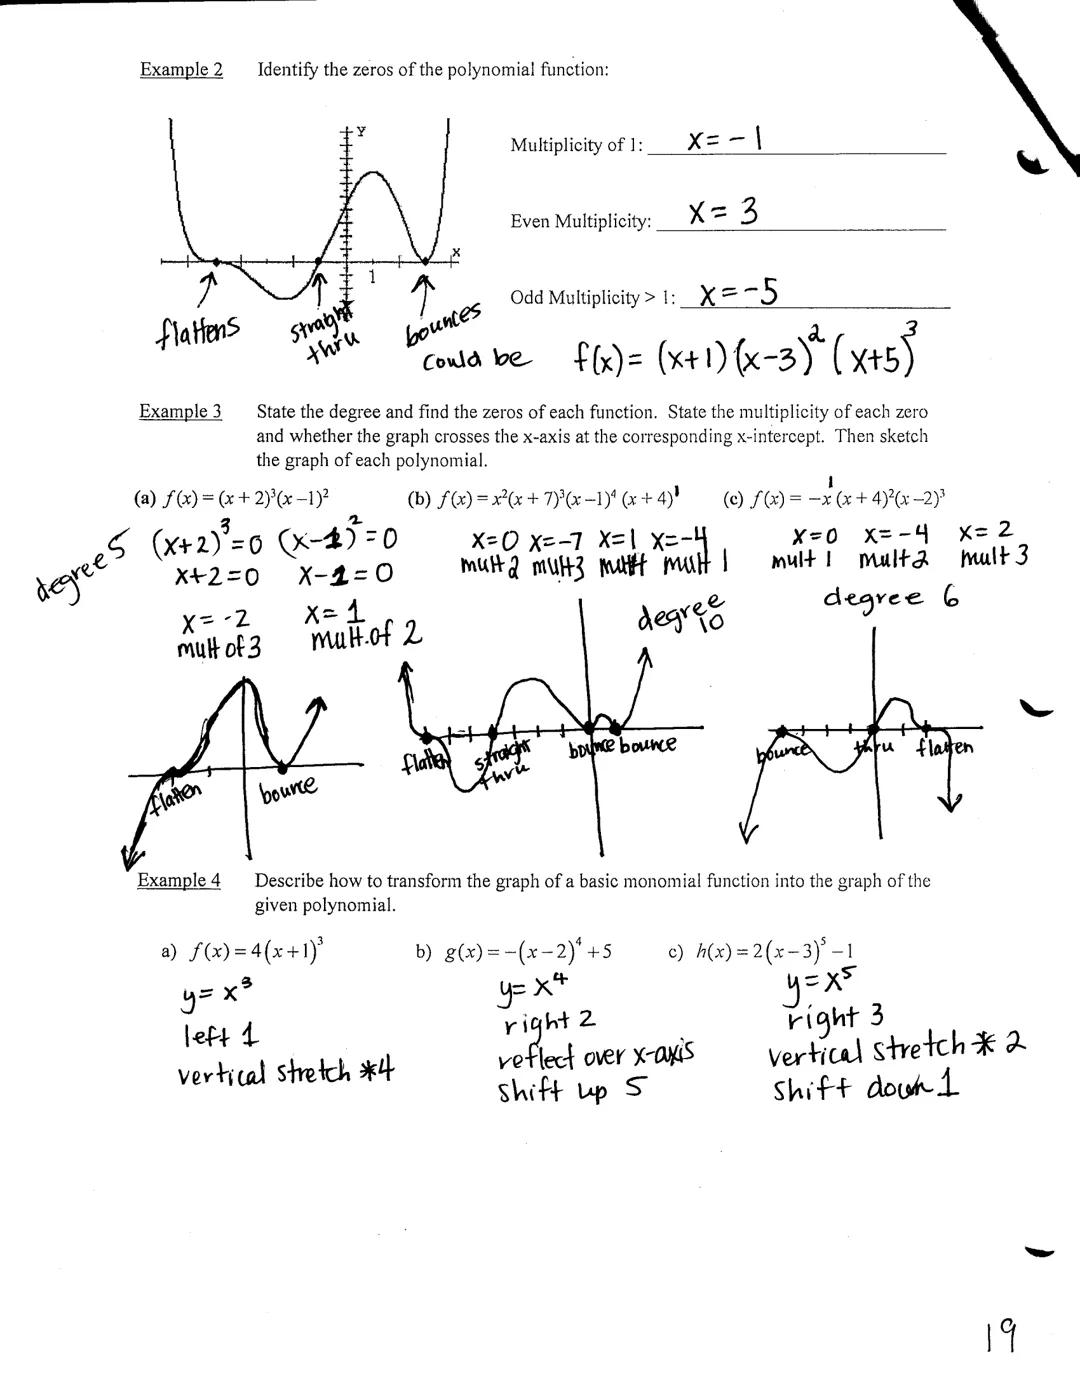 Example 2 Identify the zeros of the polynomial function:
Y
X
1
Multiplicity of 1: x = -1
Even Multiplicity: x = 3
Odd Multiplicity > 1: x = -5
flattens
straight thru
bounces
could be f(x) = (x+1)(x-3)² (x+5)³
Example 3 State the degree and find the zeros of each function. State the multiplicity of each zero
and whether the graph crosses the x-axis at the corresponding x-intercept. Then sketch
the graph of each polynomial.
(a) f(x) = (x + 2)³(x – 1)² (b) f(x) = x²(x + 7)³(x – 1)⁴ (x + 4)¹ (c) f(x) = –x¹ (x + 4)²(x – 2)³
degree 5
(x+2)³=0 (x-1)²=0
x+2=0 x-1=0
x= -2 x= 1
mult of 3 mult. of 2
flatten bounce
x=0 x=-7 x=1 x=-4
mult 2 mult 3 mult mult 1
degree 10
flatten straight thru bounce bounce
x=0 x= -4 x= 2
mult 1 mult 2 mult 3
degree 6
bounce thru flatten
Example 4 Describe how to transform the graph of a basic monomial function into the graph of the
given polynomial.
a) f(x) = 4(x+1)³ b) g(x) = –(x–2)⁴ +5 c) h(x) = 2(x–3)⁵ –1
y= x³
left 1
vertical stretch *4
y= x⁴
right 2
reflect over x-axis
shift up 5
y= x⁵
right 3
vertical stretch * 2
shift down 1
19